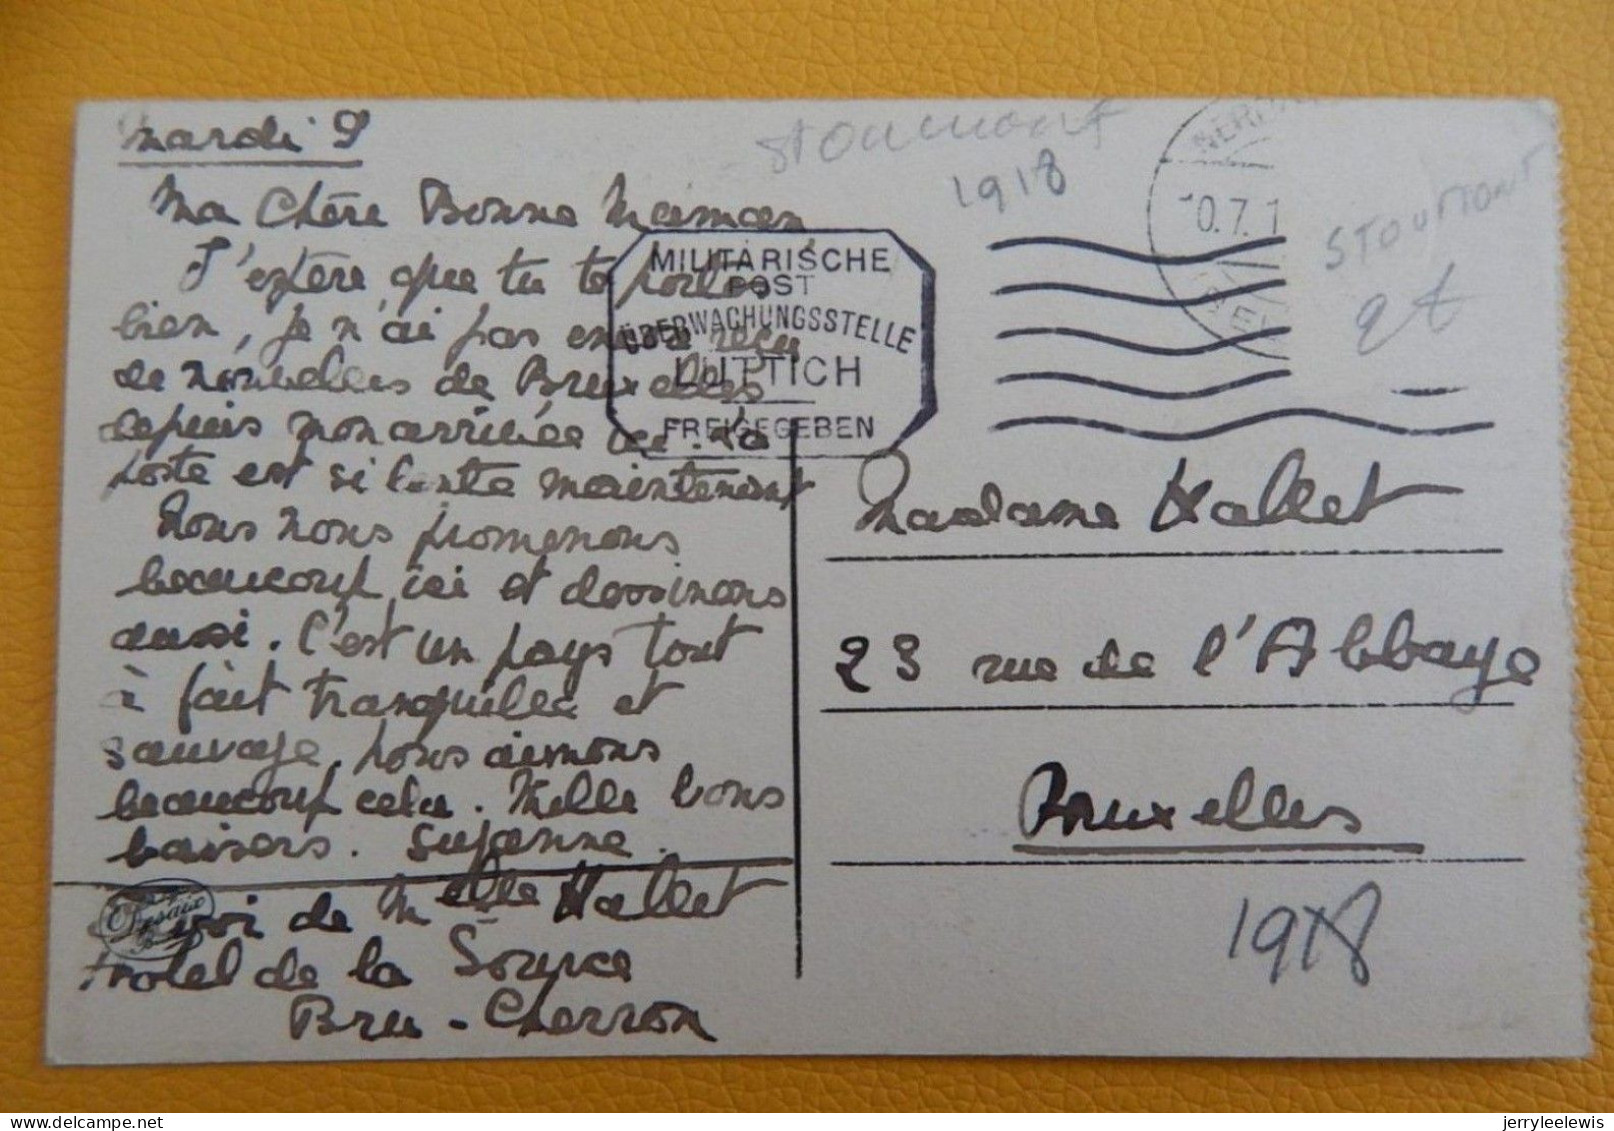 mardi 9
Ma Chère Bonne Maman
J'espère que tu te portes
bien, je n'ai pas encore reçu
de nouvelles de Bruxelles
depuis mon arrivée ici. La
poste est si lente maintenant
Nous nous promenons
beaucoup ici et dessinons
aussi. C'est un pays tout
à fait tranquille et
sauvage, nous aimons
beaucoup cela. Mille bons
baisers. Suzanne.
voi de Melle Hallet
Hotel de la Source
Bru-Cherron
MILITÄRISCHE
POST
ÜBERWACHUNGSSTELLE
LÜTTICH
FREIGEGEBEN
Stoumont
1918
10.7.1
STOUMONT
et
Madame Hallet
23 rue de l'Abbaye
Bruxelles
1918
Desaix
jerryleelewis